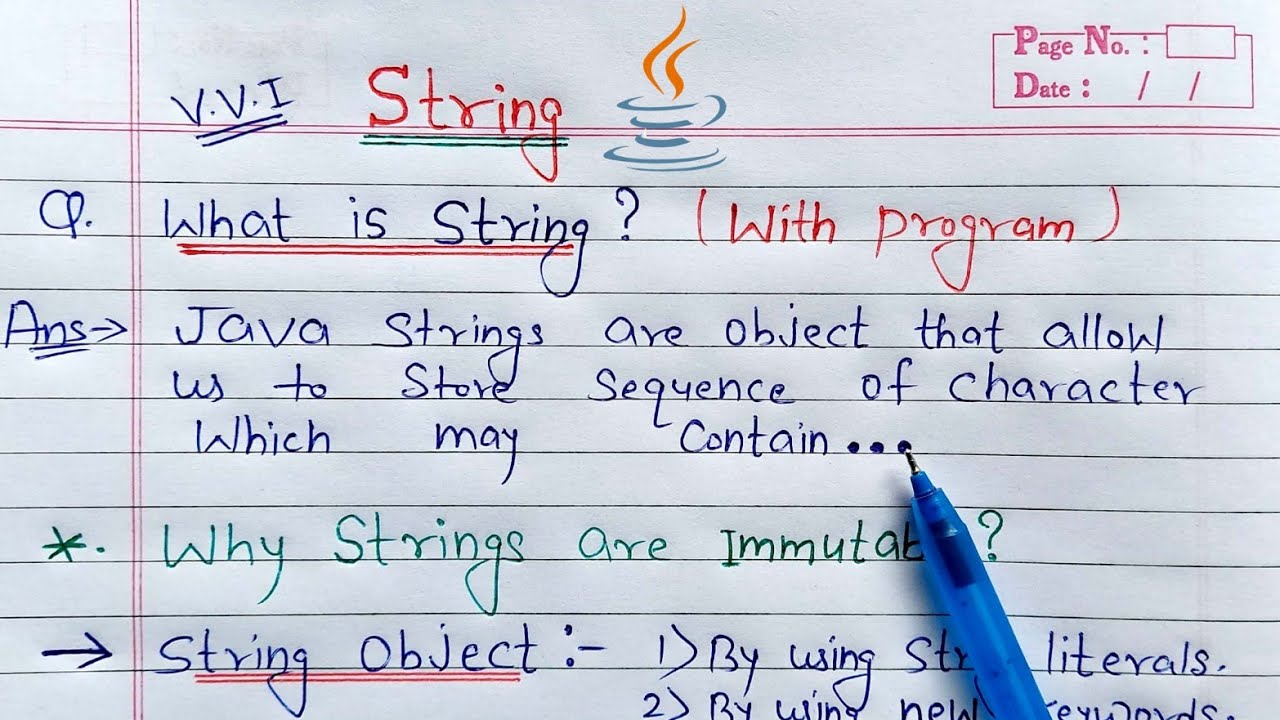 Page No. :
Date : / /
V.V.I String
Q. What is String? (With program)
Ans→ Java Strings are object that allow
us to Store Sequence of Character
Which may Contain...
*. Why Strings are ?
→ String Object :- 1) By using literals.
2) By using new